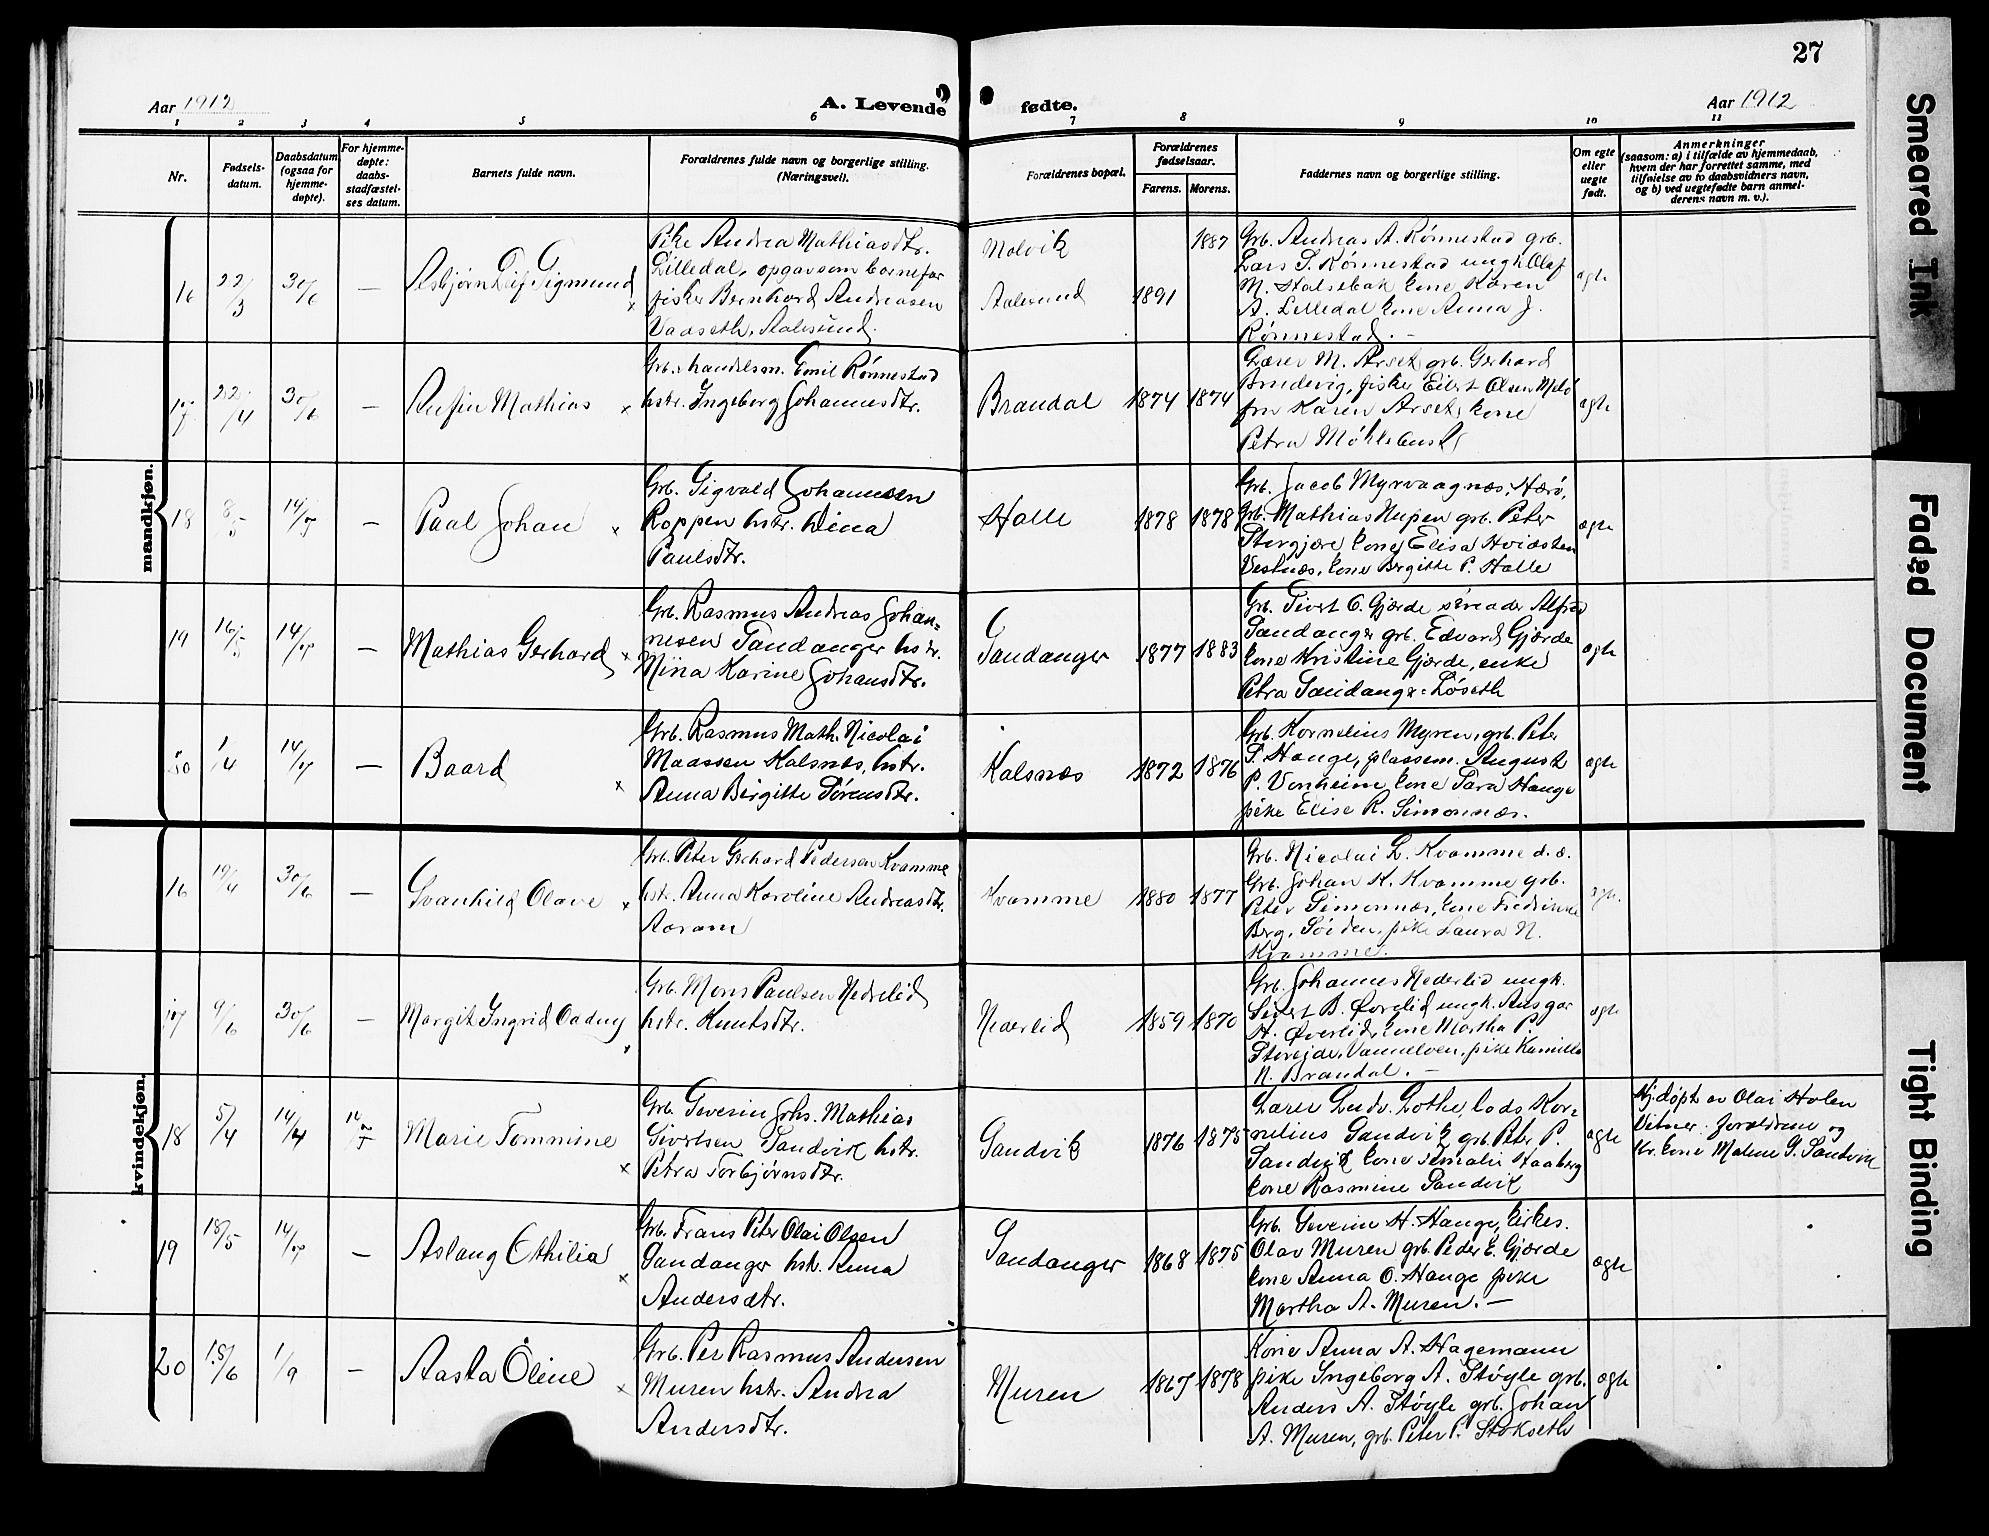 27
Aar 1912
A. Levende fødte.
Aar 1912
1 2 3 4 5 6 7 8 9 10 11
Nr.
Fødsels-
datum.
Daabsdatum
(ogsaa for
hjemme-
døpte).
For hjemme-
døpte:
daabs-
stadfæstel-
ses datum.
Barnets fulde navn.
Forældrenes fulde navn og borgerlige stilling.
(Næringsvei).
Forældrenes bopæl.
Forældrenes
fødselsaar.
Farens. Morens.
Faddernes navn og borgerlige stilling.
Om egte
eller
uegte
født.
Anmerkninger
(saasom: a) i tilfælde av hjemmedaab,
hvem der har forrettet samme, med
tilføielse av to daabsvidners navn,
og b) ved uegtefødte barn anmel-
derens navn m. v.).
mandkjøn.
16
22/3
30/6
—
Asbjørn Leif Sigmund
Pike Andrea Mathiasdtr.
Lilledal, opgav som barnefar
fisker Bernhard Andreasen
Vaaseth, Aalesund.
Molvik
Aalesund
1891
1887
Grb. Andreas A. Rønnestad grb.
Lars S. Rønnestad ungk. Olaf
M. Stalsebak kone Karen
A. Lilledal kone Anna J.
Rønnestad. —
17
22/4
30/6
—
Mathias
Grb. handelsm. Emil Rønnestad
hstr. Ingeborg Johannesdtr.
Brandal
1874
1874
Lærer M. Arset grb. Gerhard
fisker Eilert Olsen
fru Karen Arset, kone
Petra
ægte
18
8/5
14/7
—
Paal Johan
Grb. Sigvald Johannesen
Roppen hstr. Lina
Paulsdtr.
Halle
1878
1878
Grb. Jacob Myrvaagnæs, Hærø,
Grb. Mathias Nupen grb. Peter
kone Elisa Hvidsten
Vestnæs, kone Birgitte P. Halle
ægte
19
16/5
14/7
—
Mathias Gerhard
Grb. Rasmus Andreas Johan-
nesen Sandanger hstr.
Nina Karine Johansdtr.
Sandanger
1877
1883
Grb. Sivert O. Gjærde Alfred
Sandanger grb. Edvard Gjærde
kone Kristine Gjærde, enke
Petra Sandanger Løseth
ægte
20
1/4
14/7
—
Baard
Grb. Rasmus Math. Nicolai
Maassen Kalsnæs, hstr.
Anna Birgitte Sørensdtr.
Kalsnæs
1872
1876
Grb. Kornelius Myren, grb. Peter
S. Hauge, plassem. August
P. Vonheim kone Sara Hauge
pike Elise R. Simonnæs.
ægte
kvindekjøn.
16
19/4
30/6
—
Svanhild Olave
Grb. Peter Gerhard Pedersen Kvamme
hstr. Anna Karoline Andreasdtr.
Aaram
Kvamme
1880
1877
Grb. Nicolai L. Kvamme d. e.
Grb. Johan K. Kvamme grb.
Peter Simonnæs, kone Fredrikke
Berg, pike Laura N.
Kvamme.
17
9/6
30/6
—
Margit Ingrid Oddny
Grb. Mons Paulsen Nedrelid
hstr. Knutsdtr.
Nedrelid
1859
1870
Grb. Johannes Nederlid ungk.
Sivert B. Øvrelid ungk. Ansgar
H. Øverlid, kone Martha P.
pike Kamilla
N. Brandal. —
ægte
18
5/4
14/4
14/7
Marie Tommine
Grb. Severin Johs. Mathias
Sivertsen Sandvik hstr.
Petra Torbjørnsdtr.
Sandvik
1876
1875
Lærer Ludv. Lothe, lods Kor-
nelius Sandvik grb. Peter P.
Sandvik kone Amalie Haaberg
kone Rasmine Sandvik
ægte
Hj.døpt av Olai Holen
Vitner: forældrene og
kone Malene S. Sandvik
19
18/5
14/7
—
Aslaug Othilia
Grb. Frans Peter Olai Olsen
Sandanger hstr. Anna
Andersdtr.
Sandanger
1868
1875
Grb. Severin H. Hauge, kirkes.
Olav Muren grb. Peder E. Gjærde
kone Anna O. Hauge pike
Martha A. Muren. —
ægte
20
18/6
1/9
—
Aasta Oline
Grb. Per Rasmus Andersen
Muren hstr. Andrea
Andersdtr.
Muren
1867
1878
Kone Anna A. Hagemann
pike Ingeborg A. Støyle grb.
Anders A. Støyle grb. Johan
A. Muren, grb. Peter P. Stokseth
ægte
Smeared Ink
Faded Document
Tight Binding